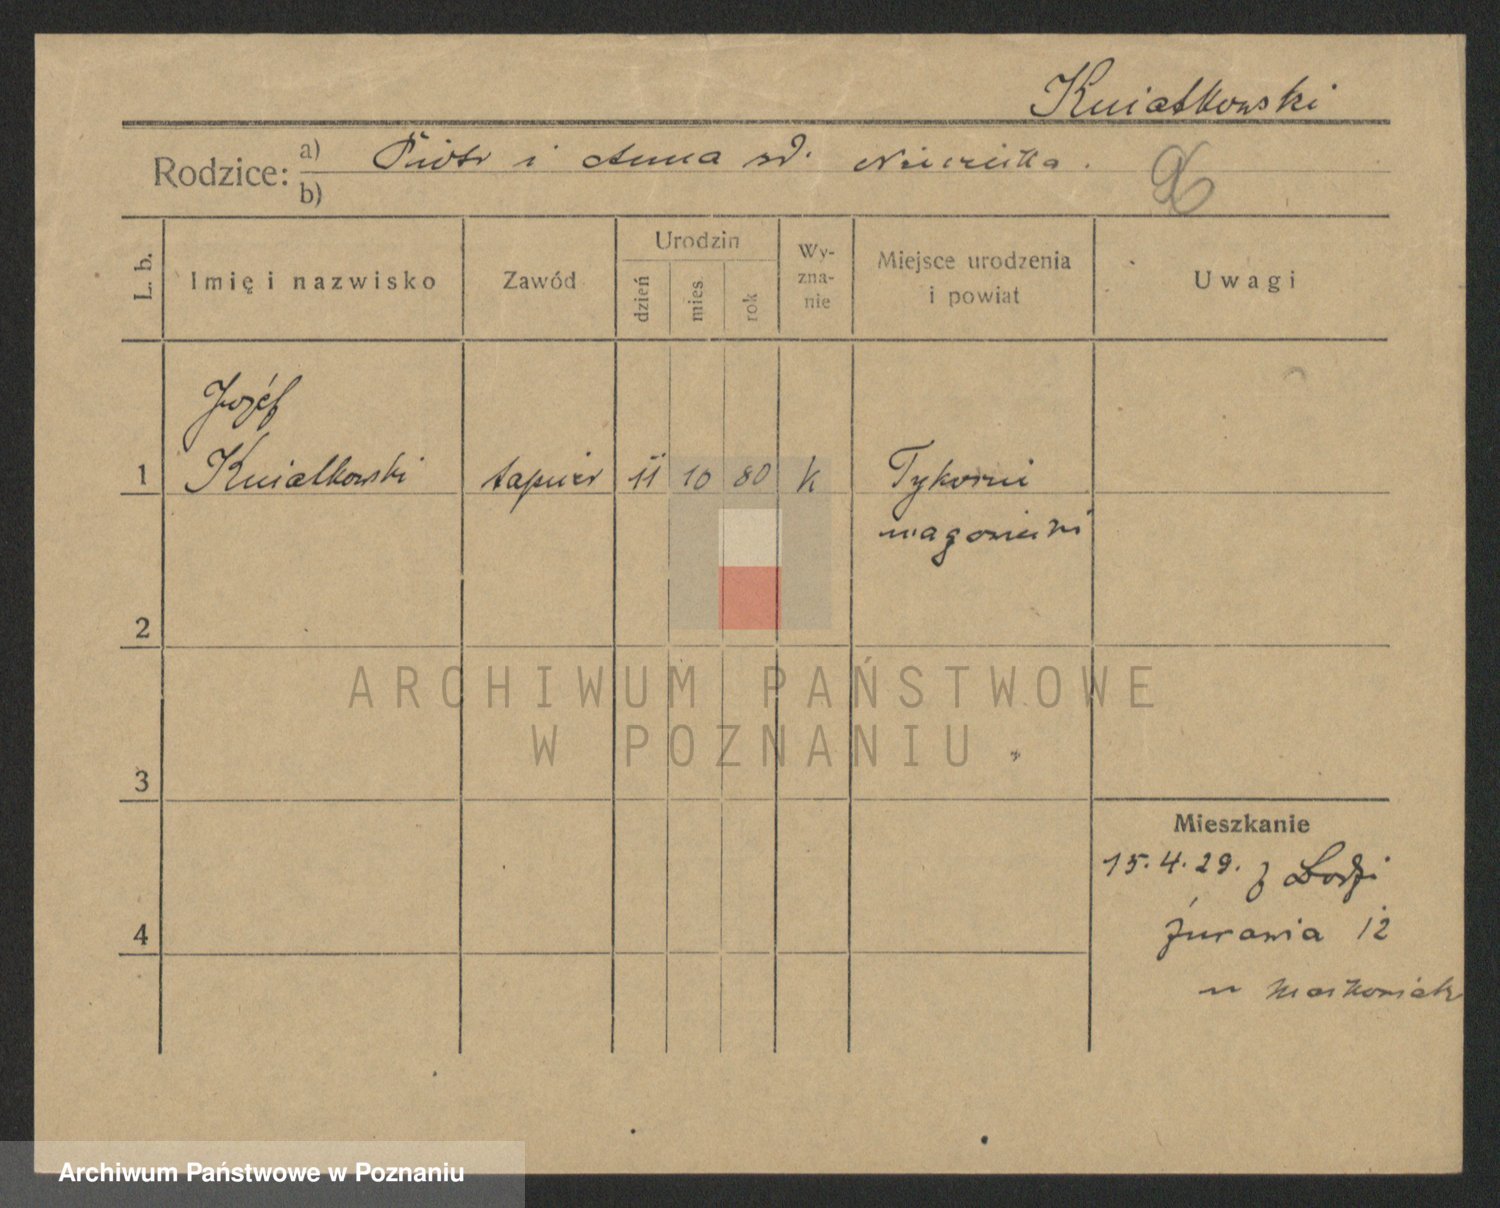 Kwiatkowski
Rodzice: a) Piotr i Anna zd.
b)
L. b.
Imię i nazwisko
Zawód
Urodzin
dzień
mies.
rok
Wy-
zna-
nie
Miejsce urodzenia
i powiat
Uwagi
Józef
1 Kwiatkowski tapicer 11 10 80 k
2
3
4
Mieszkanie
15.4.29. z Łodzi
Żurawia 12
ARCHIWUM PAŃSTWOWE
W POZNANIU
Archiwum Państwowe w Poznaniu